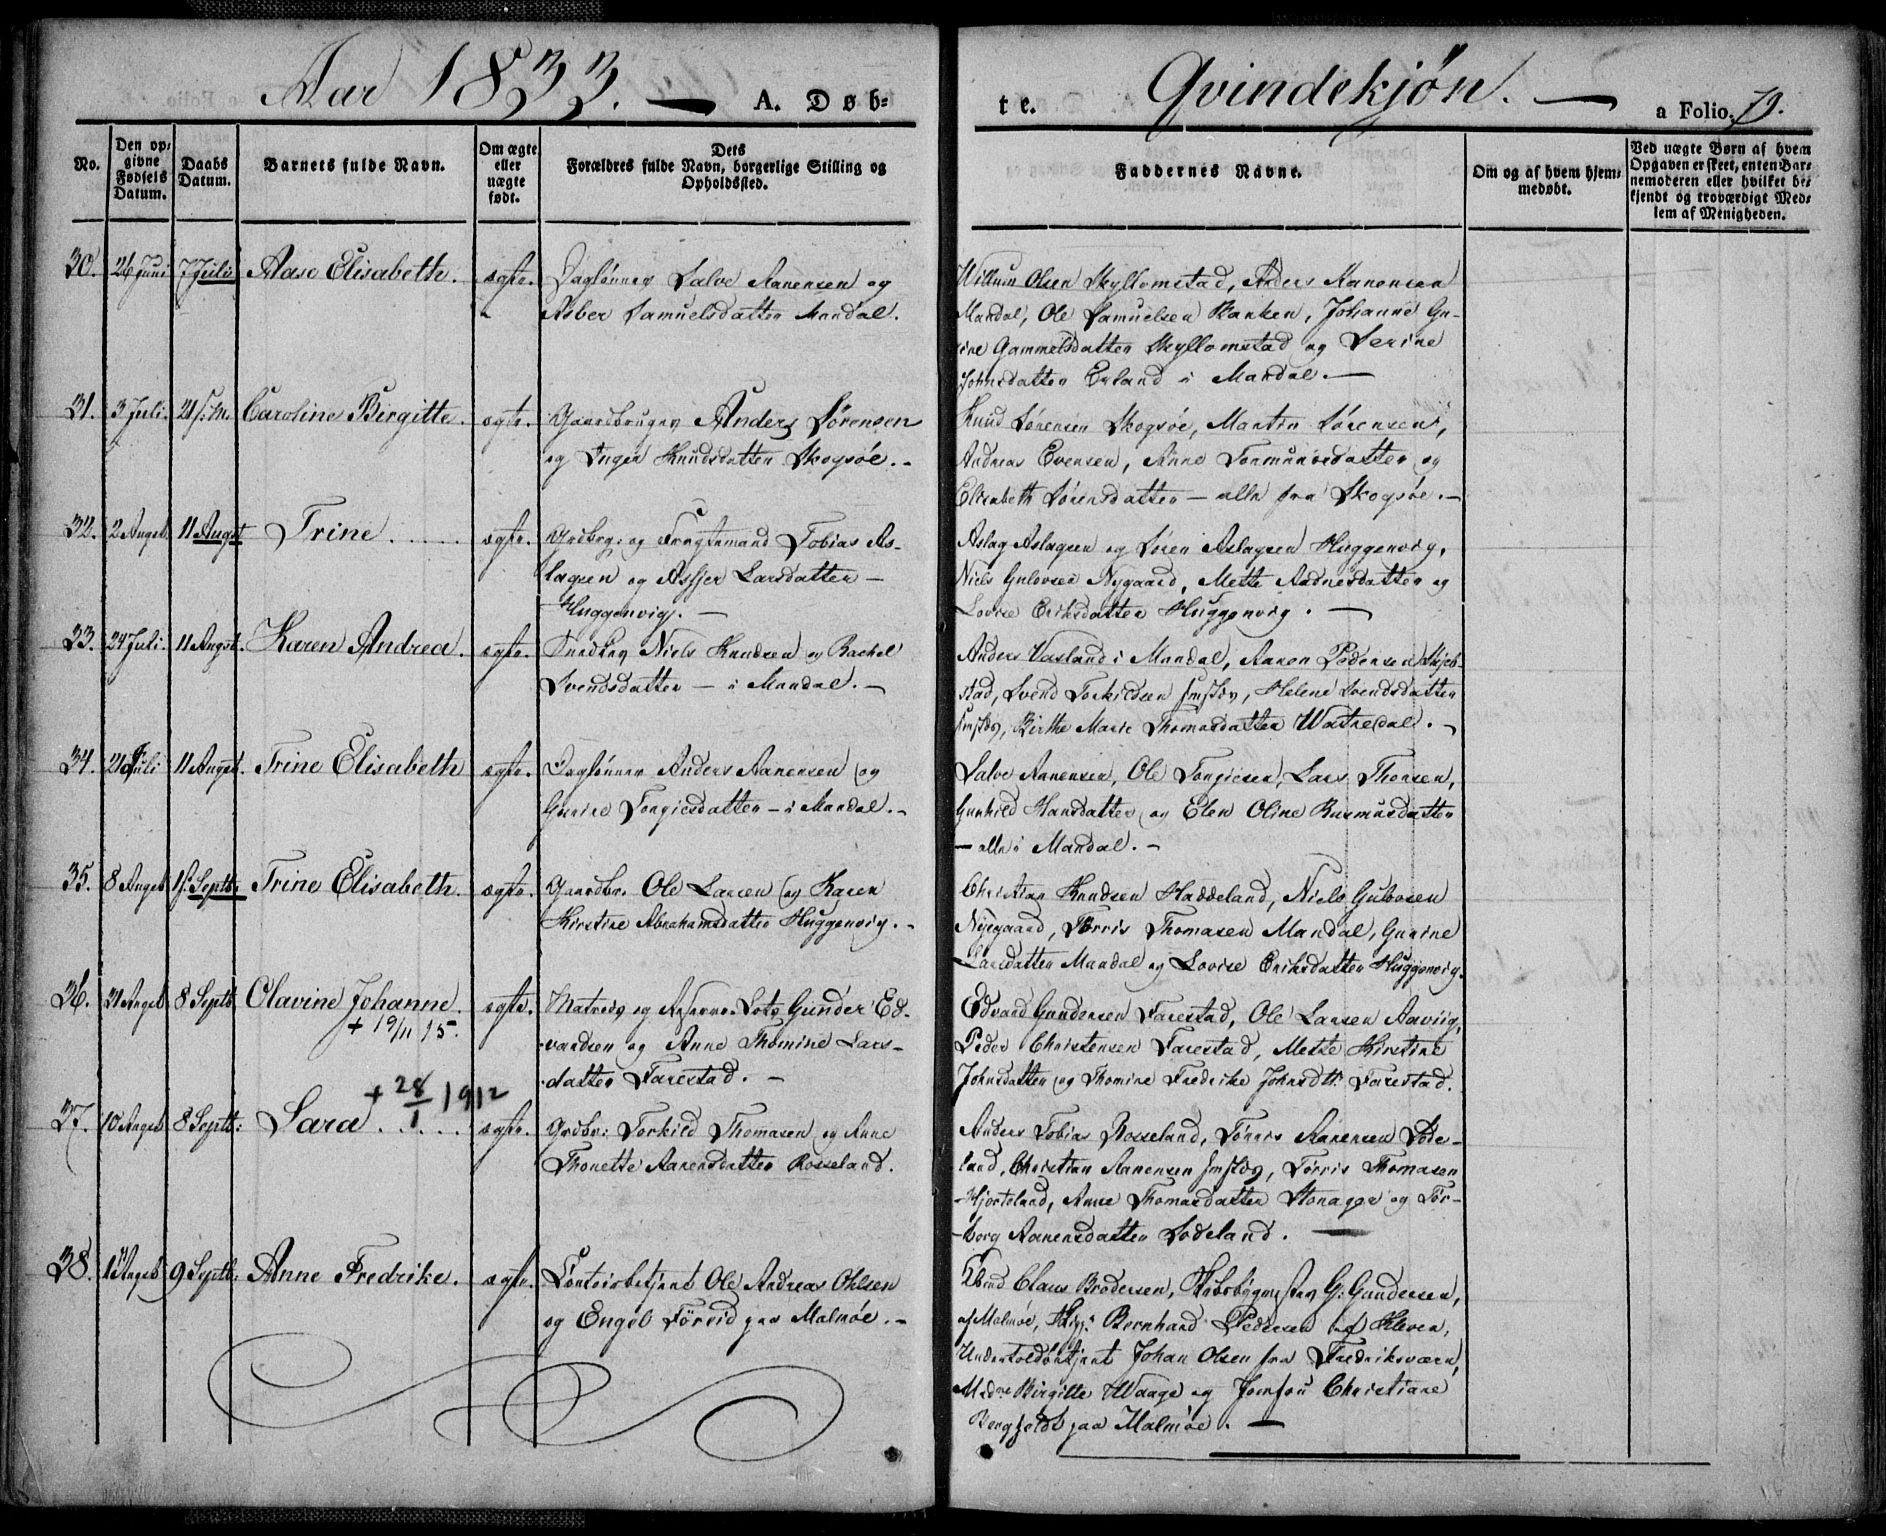 Aar 1833. — A. Døb-
te. Qvindekjøn. — a Folio. 79.
No.
Den op-
givne
Fødsels
Datum.
Daabs
Datum.
Barnets fulde Navn.
Om ægte
eller
uægte
født.
Dets
Forældres fulde Navn, borgerlige Stilling og
Opholdssted.
Faddernes Navne.
Om og af hvem hjem-
medøbt.
Ved uægte Børn af hvem
Opgaven er skeet, enten Bar-
nemoderen eller hvilket be-
kjendt og troværdigt Med-
lem af Menigheden.
30. 26 Juni 7 Juli Aase Elisabeth. ægte. Daglønner Salve Aanensen og
Asber Samuelsdatter Mandal.
Willum Olsen Skyllomstad, Anders Aanensen
Mandal, Ole Samuelsen Banken, Johanne Gu-
rine Gammelsdatter Skyllomstad og Serine
Johnsdatter Eyland i Mandal. —
31. 3 Juli. 21 s. M. Caroline Birgitte. ægte. Gaardbruger Anders Sørensen
og Inger Knudsdatter Skogsøe. -
Knud Sørensen Skogsøe, Martin Sørensen,
Andreas Evensen, Anne Tormundsdatter og
Elisabeth Sørensdatter — alle fra Skogsøe. —
32. 2 August 11 Augst Trine. . . . . ægte. Grdbrg: og Fragtemand Tobias As-
lagsen og Asgjer Larsdatter —
Huggenvig. —
Aslag Aslagsen og Søren Aslagsen Huggenvig,
Niels Gulovsen Nygaard, Mette Andnesdatter og
Lovise Eriksdatter Huggenvig. —
33. 24 Juli. 11 Augst. Karen Andrea. ægte. Snedker Niels Knudsen og Rachel
Svendsdatter — i Mandal. —
Anders Vasland i Mandal, Aanen Pedersen Skjeb-
stad, Svend Torkildsen , Helene Svendsdatter
, Birthe Marie Thomasdatter Watnedal. —
34. 21 Juli 11 Augst. Trine Elisabeth ægte. Daglønner Anders Aanensen og
Gurine Tongiesdatter — i Mandal. -
Salve Aanensen, Ole Tongiesen, Lars Thorsen,
Gunhild Hansdatter og Elen Oline Rasmusdatter
— alle i Mandal. —
35. 8 August 1st Septb: Trine Elisabeth. ægte. Gaardbr. Ole Larsen og Karen
Kirstine Abrahamsdatter Huggenvig. -
Christian Knudsen Haddeland, Niels Gulovsen
Nyegaard, Tørris Thomasen Mandal, Gurine
Larsdatter Mandal og Lovise Eriksdatter Huggenvig.
36. 21 August 8 Septb Olavine Johanne. ægte. Matros og Reserve-Lods Gunder Ed-
+ 19/11 15.
vardsen og Anne Thomine Lars-
datter Farestad. —
Edvard Gundersen Farestad, Ole Larsen Aavig,
Peder Christensen Farestad, Mette Kirstine
Johnsdatter og Thomine Fredrike Johnsdt: Farestad.
+ 28/1 1912
37. 10 August 8 Septb: Sara. . . . . ægte. Grdbr: Torkild Thomasen og Anne
Thonette Aanensdatter Rosseland.
Anders Tobias Rosseland, Tønnes Aanensen Lode-
land, Christian Aanensen , Tørris Thomasen
Hjorteland, Anne Thomasdatter og Tor-
borg Aanensdatter Lodeland. —
38. August 9 Septb: Anne Fredrike. ægte. Ole Andreas Ohlsen
og Engel paa Malmøe. -
Claus Brodersen, G: Gundersen,
af Malmøe, Bernhard Pedersen af Kleven,
Undertoldbetjent Johan Olsen fra Fredriksværn,
Birgitte Waage og Jomfru Christiane
paa Malmøe. —